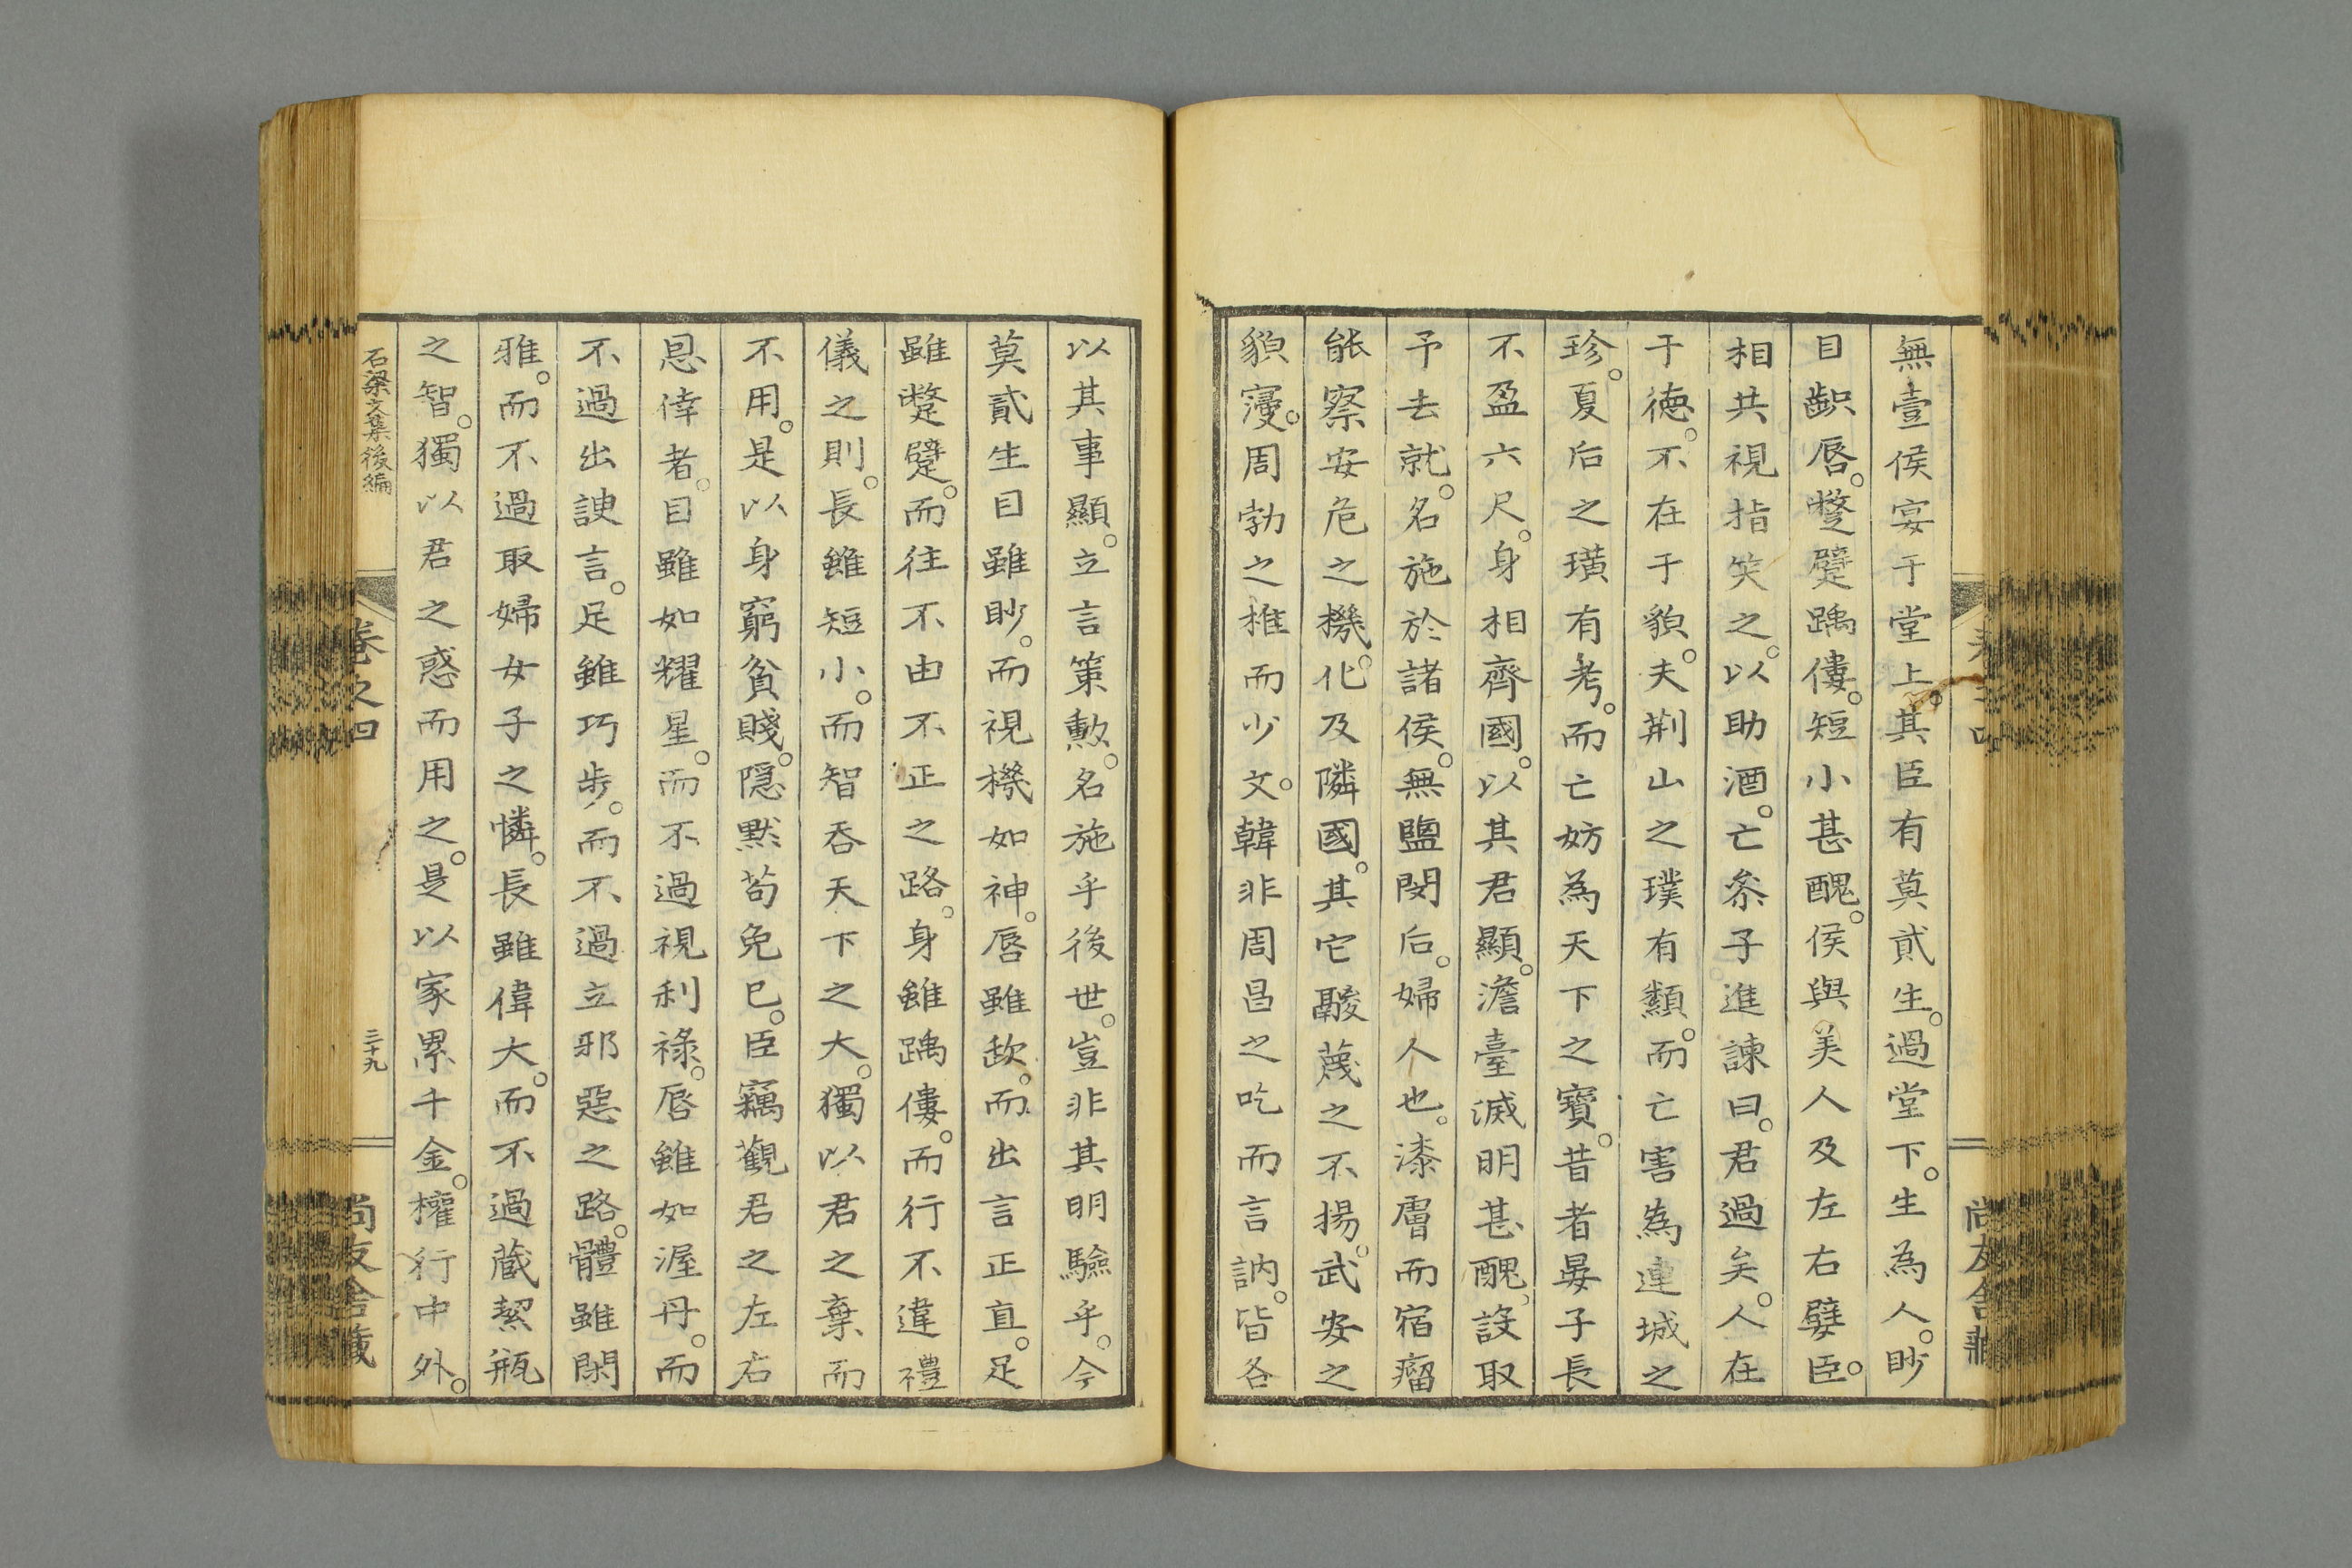 無壹侯宴于堂上。其臣有莫貳生。過堂下。生為人。眇
目齞唇。蹩躄踽僂。短小甚醜。侯與美人及左右嬖臣。
相共視指笑之。以助酒。亡忝子進諫曰。君過矣。人在
于徳。不在于貌。夫荆山之璞有纇。而亡害為連城之
珍。夏后之璜有考。而亡妨為天下之寶。昔者晏子長
不盈六尺。身相齊國。以其君顯。澹臺滅明甚醜。設取
予去就。名施於諸侯。無鹽閔后。婦人也。漆膚而宿瘤
能察安危之機。化及隣國。其它鬷蔑之不揚。武安之
貌寢。周勃之椎而少文。韓非周昌之吃而言訥。皆各
以其事顯。立言策勲。名施乎後世。豈非其明驗乎。今
莫貳生目雖眇。而視機如神。唇雖㰹。而出言正直。足
雖蹩躄。而往不由不正之路。身雖踽僂。而行不違禮
儀之則。長雖短小。而智吞天下之大。獨以君之棄而
不用。是以身窮貧賤。隠黙苟免已。臣竊觀君之左右
恩倖者。目雖如耀星。而不過視利祿。唇雖如渥丹。而
不過出諛言。足雖巧歩。而不過立邪惡之路。體雖閑
雅。而不過取婦女子之憐。長雖偉大。而不過蔵挈瓶
之智。獨以君之惑而用之。是以家累千金。權行中外。
石梁文集後編
卷之四
三十九
尚友舎藏